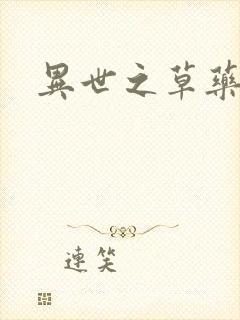 異世之草藥
連笑